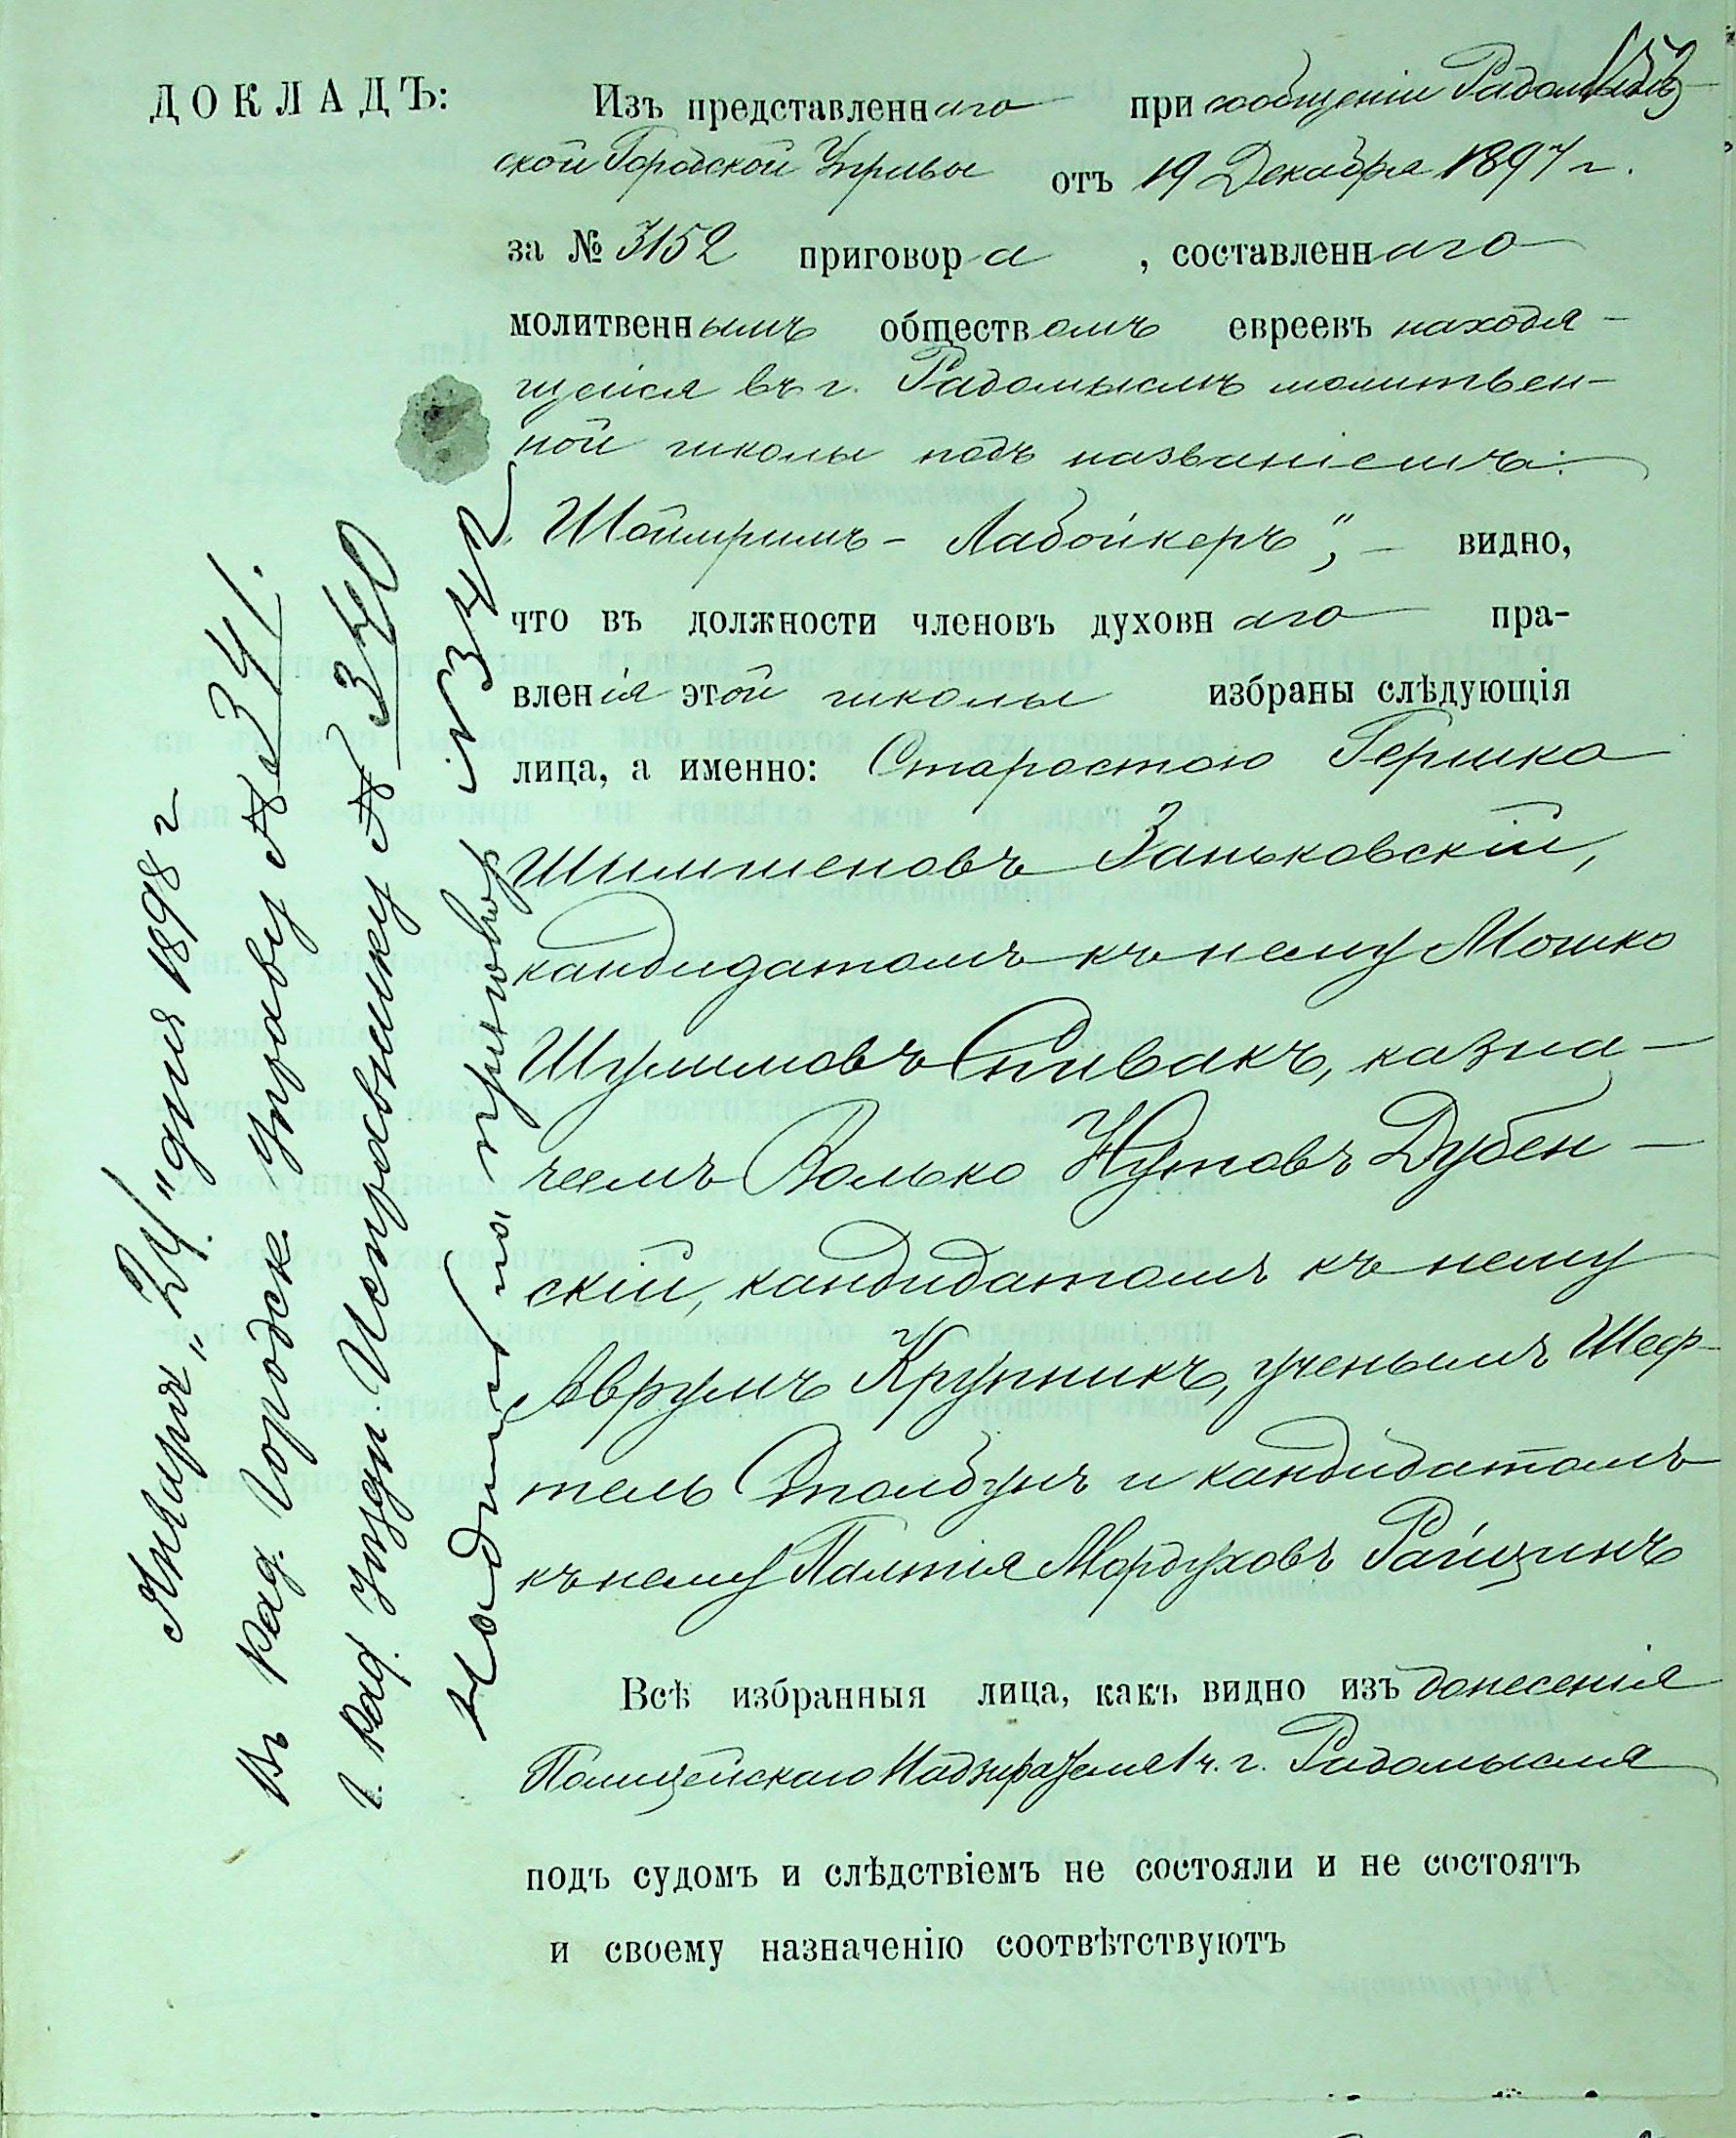 ДОКЛАДЪ:
Изъ представленнаго при сообщеніи Радомысль-
ской Городской Управы отъ 19 Декабря 1897 г.
за № 3152 приговора, составленнаго
молитвеннымъ обществомъ евреевъ находя-
щейся въ г. Радомыслѣ молитвен-
ной школы подъ названіемъ:
"Шоймримъ - Лабойкеръ", - видно,
что въ должности членовъ духовнаго пра-
вленія этой школы избраны слѣдующія
лица, а именно: Старостою Гершко
Шимшеновъ Заньковскій,
кандидатомъ къ нему Мошко
Шулимовъ Спивакъ, казна-
чеемъ Волько Нутовъ Дубен-
скій, кандидатомъ къ нему
Аврумъ Крупникъ, ученымъ Шеф-
тель Столбунъ и кандидатомъ
къ нему Палтія Мордуховъ Райцинъ
Всѣ избранныя лица, какъ видно изъ донесенія
Полицейскаго Надзирателя 1 ч. г. Радомысля
подъ судомъ и слѣдствіемъ не состояли и не состоятъ
и своему назначенію соотвѣтствуютъ
Января "24" дня 1898 г
Въ Рад. Городск. Управу № 341.
Г. Рад. Уѣздн. Исправнику № 340
Надпись на приговор № 342